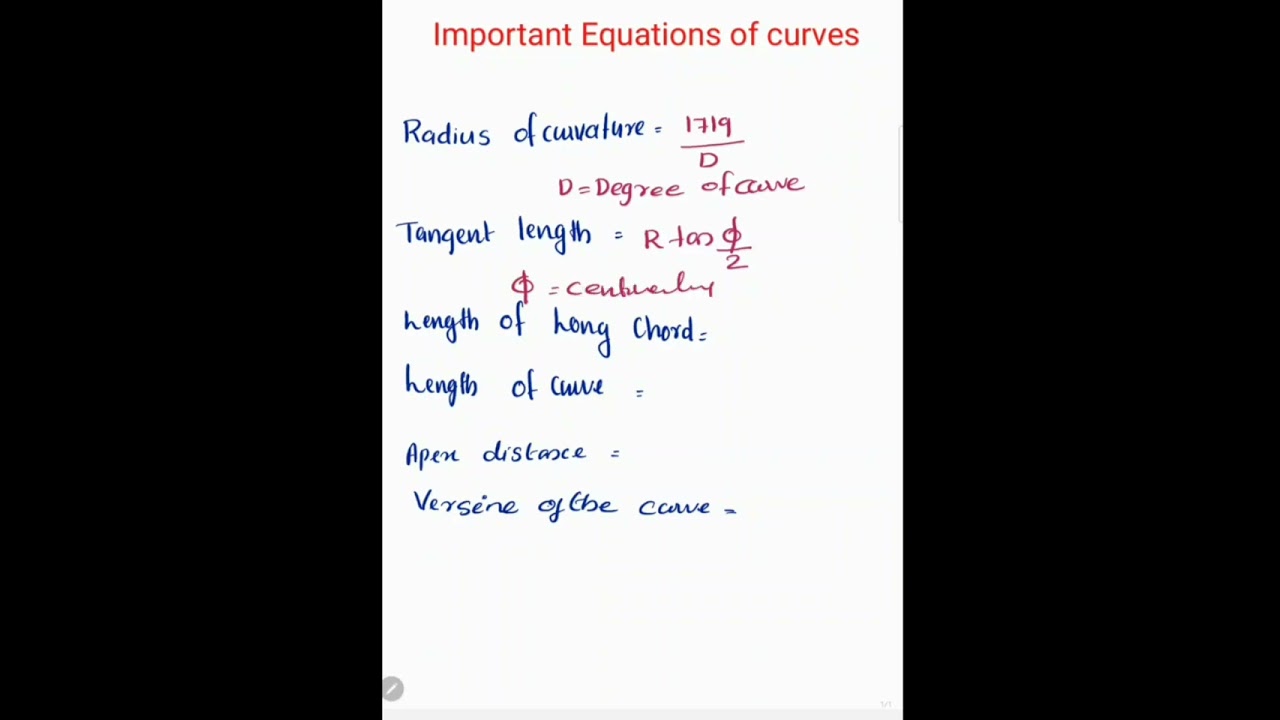 Important Equations of curves
Radius of curvature = 1719
D
D = Degree of curve
Tangent length = R tan ϕ
2
ϕ =
Length of Long Chord =
Length of curve =
Apex distance =
Versine of the curve =
1/1